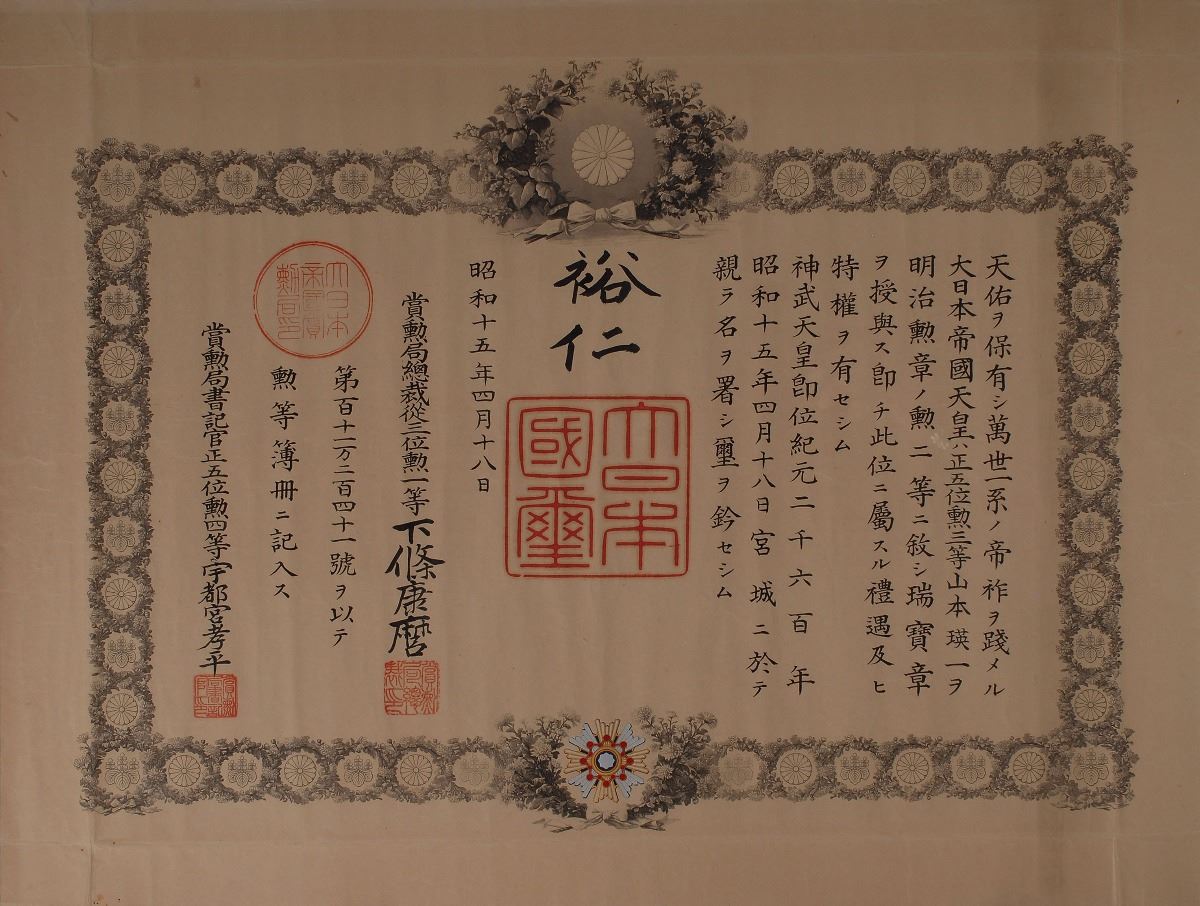 天佑ヲ保有シ萬世一系ノ帝祚ヲ踐メル
大日本帝國天皇ハ正五位勲三等山本瑛一ヲ
明治勲章ノ勲二等ニ敘シ瑞寶章
ヲ授與ス卽チ此位ニ屬スル禮遇及ヒ
特權ヲ有セシム
神武天皇卽位紀元二千六百年
昭和十五年四月十八日宮城ニ於テ
親ラ名ヲ署シ璽ヲ鈐セシム
裕仁
大日本國璽
昭和十五年四月十八日
賞勲局總裁從三位勲一等下條康麿
第百十一万二百四十一號ヲ以テ
勲等簿冊ニ記入ス
大日本帝國賞勲局印
賞勲局書記官正五位勲四等宇都宮孝平